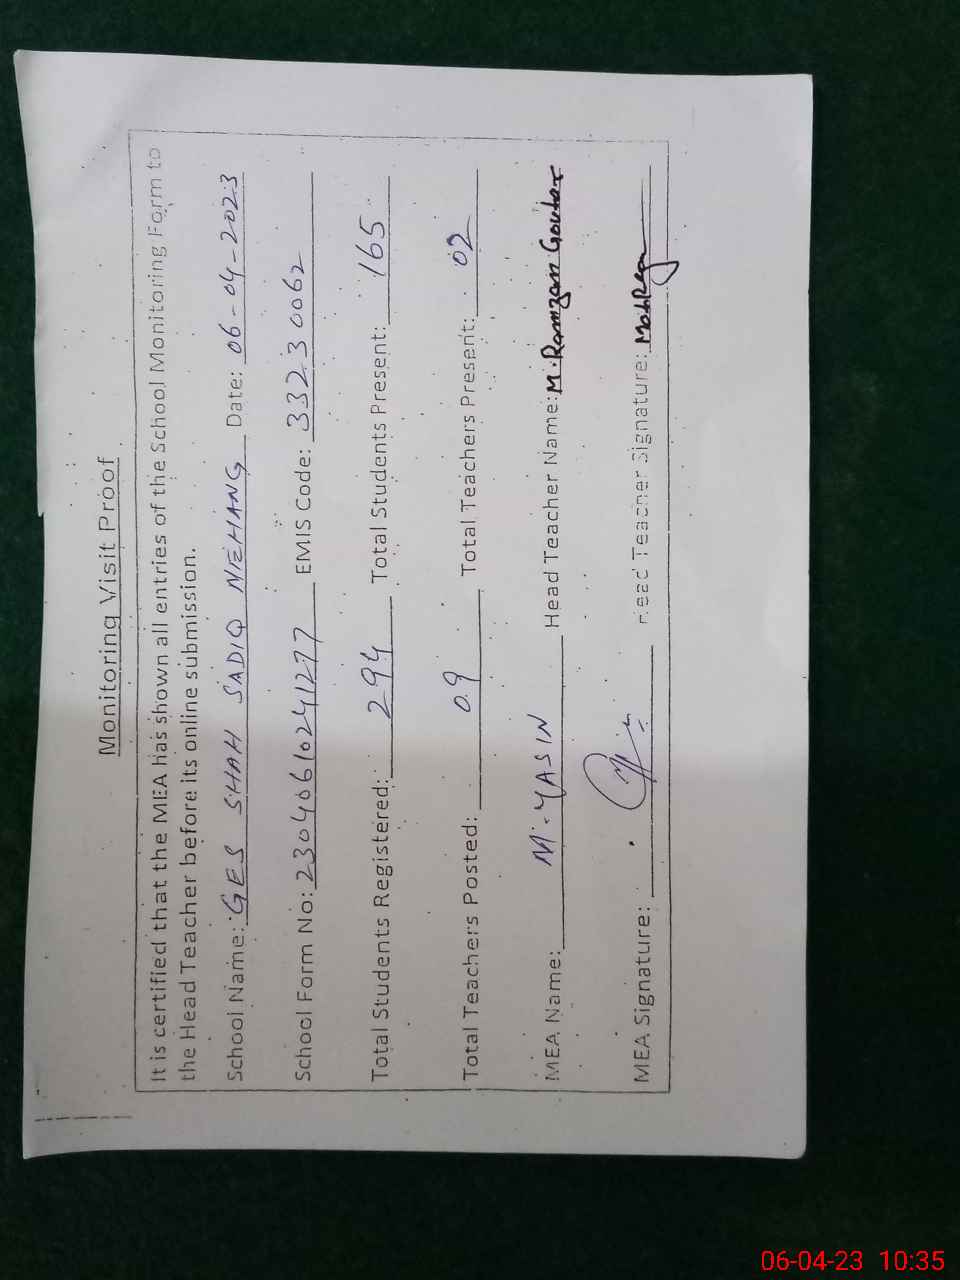 Monitoring Visit Proof
It is certified that the MEA has shown all entries of the School Monitoring Form to
the Head Teacher before its online submission.
School Name: GES SHAH SADIQ NEHANG Date: 06-04-2023
School Form No: 230406161024 1277 EMIS Code: 33230062
Total Students Registered: 294 Total Students Present: 165
Total Teachers Posted: 09 Total Teachers Present: 02
MEA Name: M. YASIN Head Teacher Name: M. Ramzan
MEA Signature: Head Teacher Signature:
06-04-23 10:35